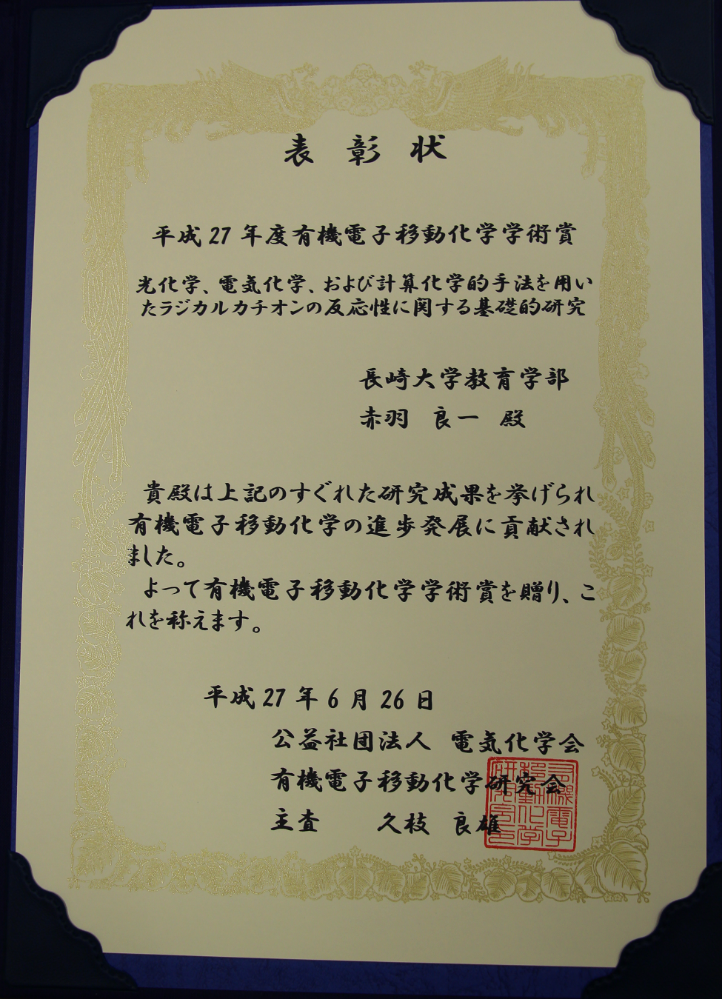 表彰状
平成27年度有機電子移動化学学術賞
光化学、電気化学、および計算化学的手法を用い
たラジカルカチオンの反応性に関する基礎的研究
長崎大学教育学部
赤羽 良一 殿
貴殿は上記のすぐれた研究成果を挙げられ
有機電子移動化学の進歩発展に貢献され
ました。
よって有機電子移動化学学術賞を贈り、こ
れを称えます。
平成27年6月26日
公益社団法人 電気化学会
有機電子移動化学研究会
主査 久枝 良雄